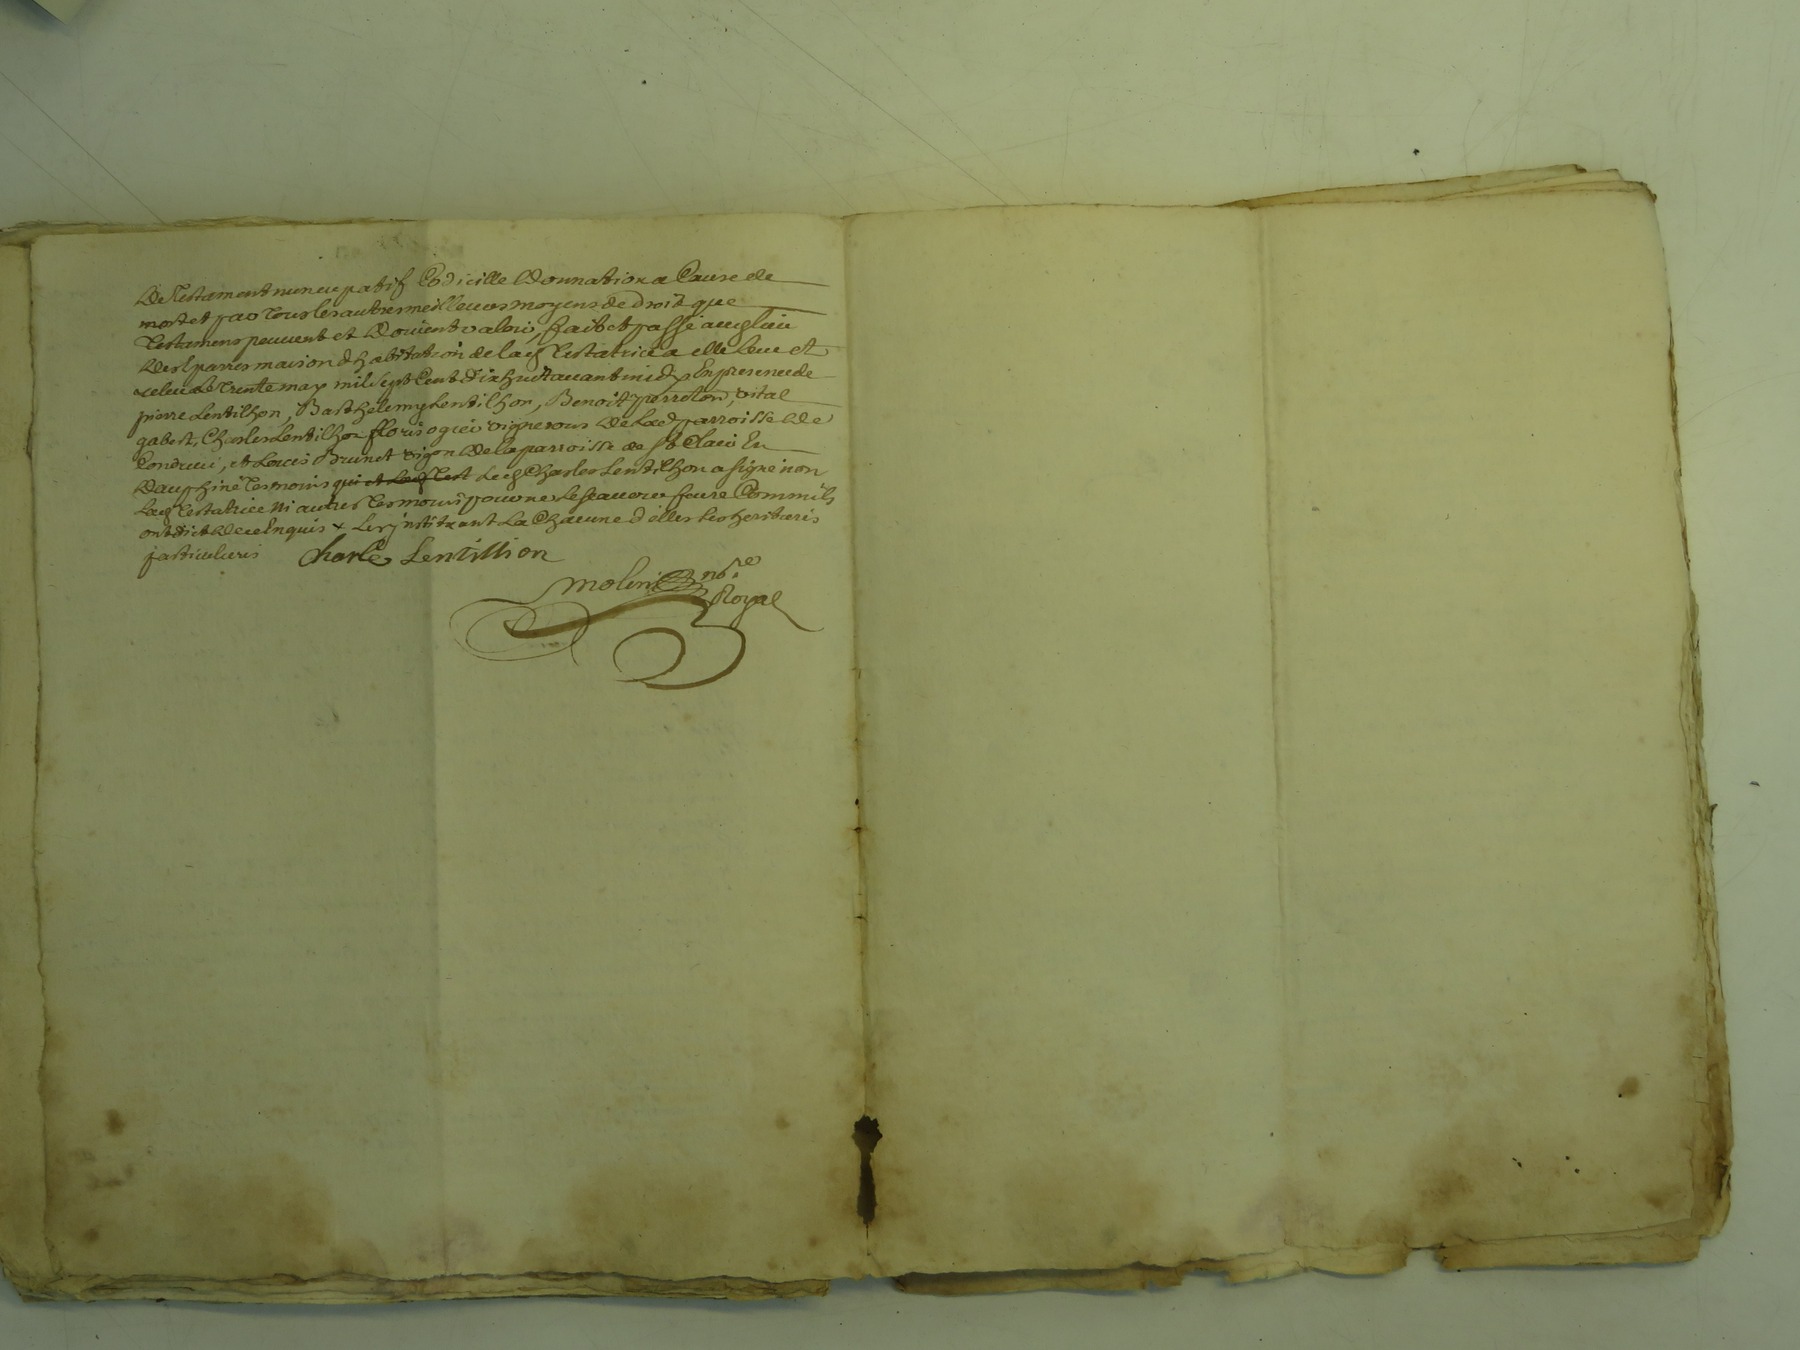 de Testament nuncupatif Codicille donnation a Cause de
mort et par tous les autres meilleurs moyens de droit que
Testamens peuvent et doivent valoir, fait et passé au lieu
des parres maison d'habitation de lad Testatrice a elle leu et
releu le trente may mil sept Cent dix huit avant midy En presence de
pierre Lentilhon, Barthelemy Lentilhon, Benoit perreton, vital
gabert, Charles Lentilhon floris ogier vignerons de lad parroisse de
Condrieu, et Louis Brunet vigon de la parroisse de St Clair En
dauphiné Tesmoins qui et led Test led Charles Lentilhon a signé non
lad Testatrice ni autres Tesmoins pour ne le scavoir feure Comm ils
ont dit de ce Enquis + les instituant la Chacune d'elles ses heritieres
particulieres Charle Lentillion
Molin nore
Royal